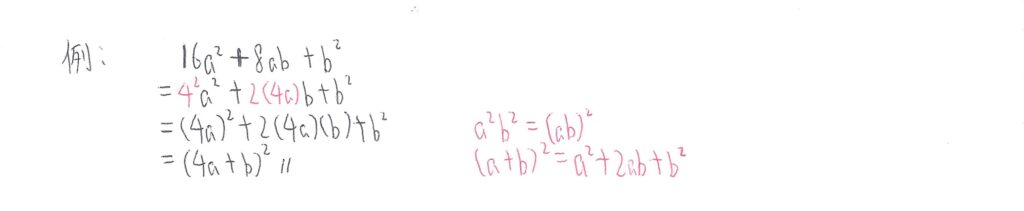 例: 16a² + 8ab + b²
= 4²a² + 2(4a)b + b²
= (4a)² + 2(4a)(b) + b²
a²b² = (ab)²
= (4a + b)² //
(a + b)² = a² + 2ab + b²